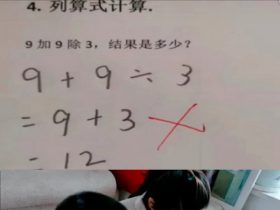 4. 列算式计算.
9 加 9 除 3，结果是多少?
9 + 9 ÷ 3
= 9 + 3
= 12